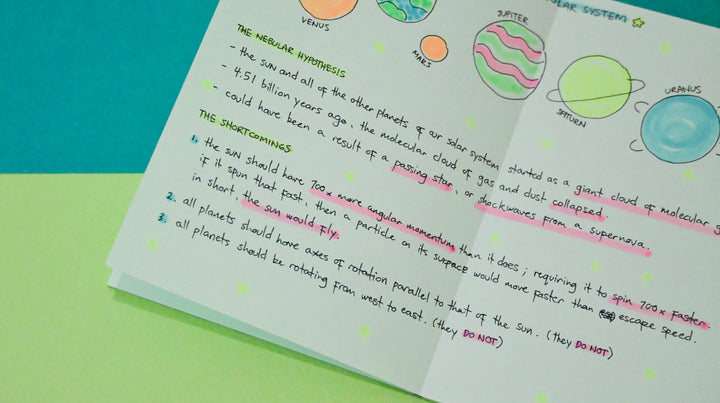 SOLAR SYSTEM
VENUS
MARS
JUPITER
SATURN
URANUS
THE NEBULAR HYPOTHESIS
- the SUN and all of the other planets of our solar system started as a giant cloud of molecular
- 4.51 billion years ago, the molecular cloud of gas and dust collapsed.
- could have been a result of a passing star, or shockwaves from a supernova.
THE SHORTCOMINGS
1. the sun should have 700x more angular momentum than it does ; requiring it to spin 700x faster.
if it spun that fast, then a particle on its surface would move faster than escape speed.
in short, the sun would fly.
2. all planets should have axes of rotation parallel to that of the sun. (they DO NOT)
3. all planets should be rotating from west to east. (they DO NOT)